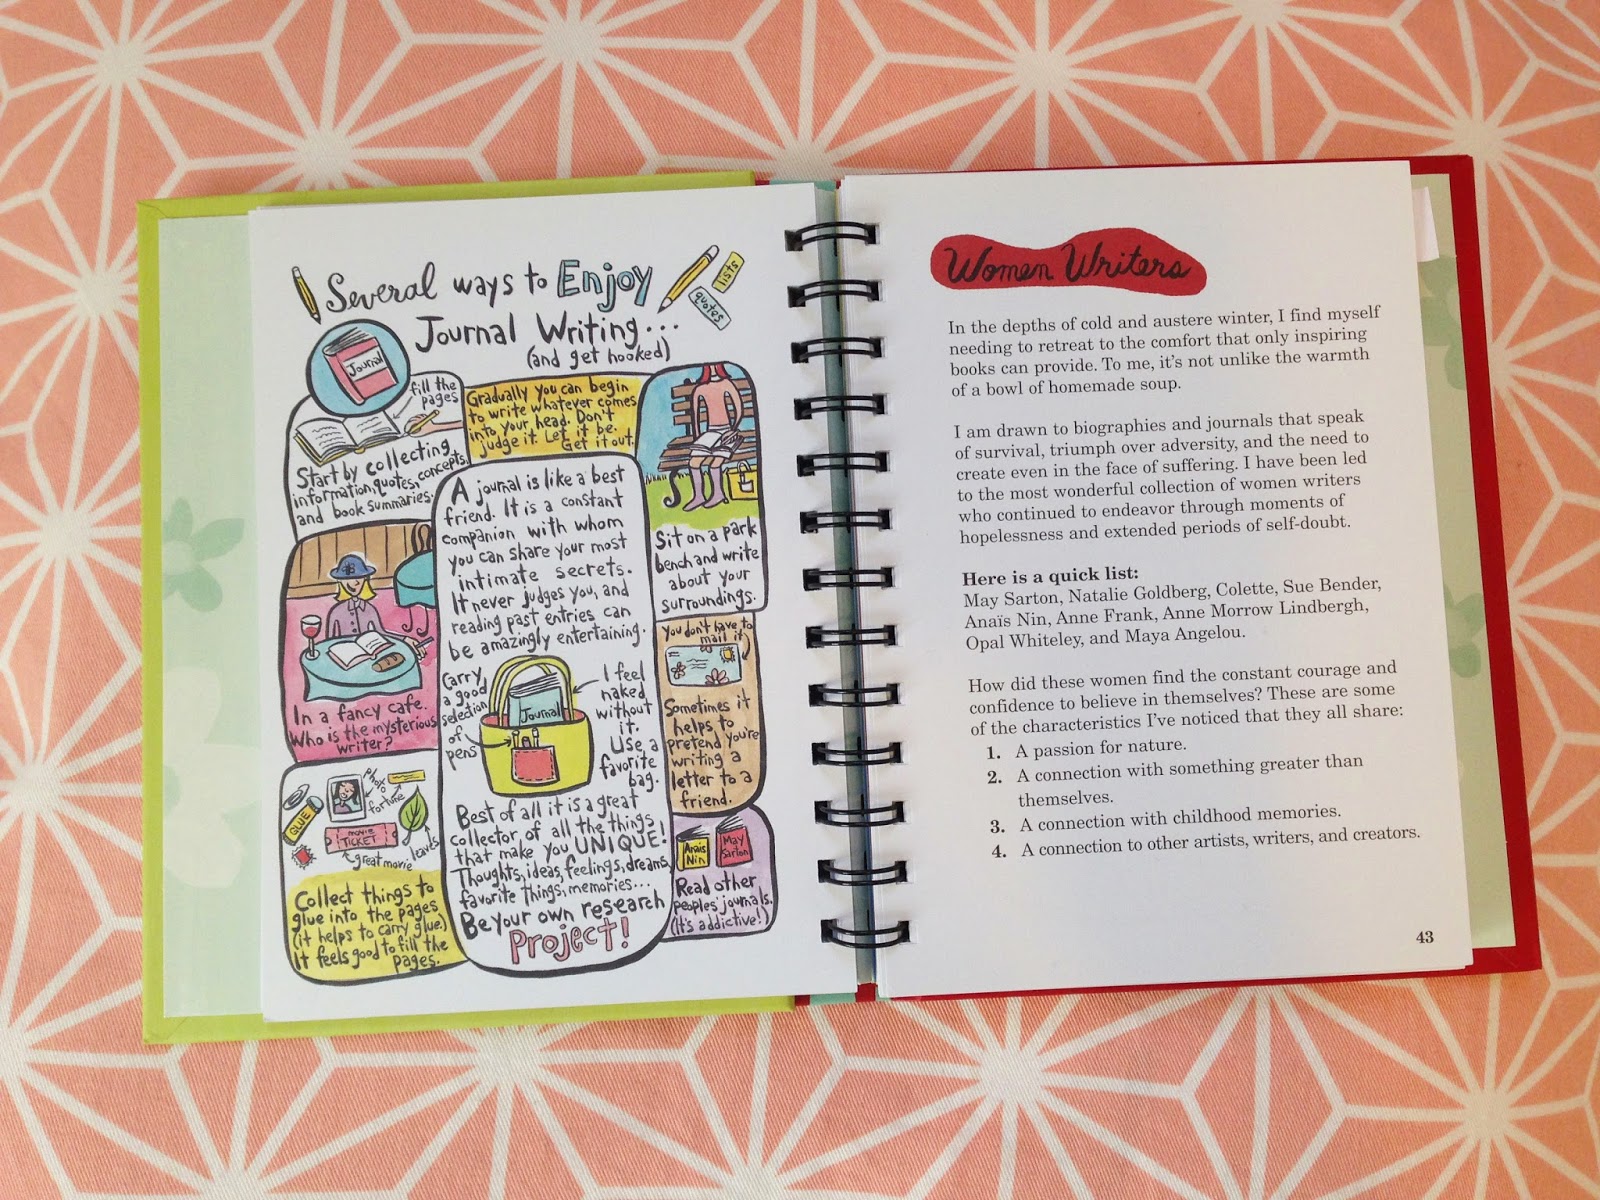 Several ways to Enjoy
Journal Writing...
(and get hooked)
lists
quotes
Journal
fill the
pages
Start by collecting
information, quotes, concepts,
and book summaries.
Gradually you can begin
to write whatever comes
into your head. Don't
judge it. Let it be.
Get it out.
Sit on a park
bench and write
about your
surroundings.
In a fancy cafe.
Who is the mysterious
writer?
A journal is like a best
friend. It is a constant
companion with whom
you can share your most
intimate secrets.
It never judges you, and
reading past entries can
be amazingly entertaining.
Carry
a good
selection
of
pens
Journal
I feel
naked
without
it.
Use a
favorite
bag.
Best of all it is a great
collector of all the things
that make you UNIQUE!
Thoughts, ideas, feelings, dreams,
favorite things, memories...
Be your own research
Project!
You don't have to
mail it
Sometimes it
helps to
pretend you're
writing a
letter to a
friend.
GLUE
photo
fortune
movie
TICKET
great movie
leaves
Collect things to
glue into the pages
(it helps to carry glue.)
It feels good to fill the
pages.
Anaïs
Nin
May
Sarton
Read other
peoples' journals.
(It's addictive!)
Women Writers
In the depths of cold and austere winter, I find myself
needing to retreat to the comfort that only inspiring
books can provide. To me, it's not unlike the warmth
of a bowl of homemade soup.
I am drawn to biographies and journals that speak
of survival, triumph over adversity, and the need to
create even in the face of suffering. I have been led
to the most wonderful collection of women writers
who continued to endeavor through moments of
hopelessness and extended periods of self-doubt.
Here is a quick list:
May Sarton, Natalie Goldberg, Colette, Sue Bender,
Anaïs Nin, Anne Frank, Anne Morrow Lindbergh,
Opal Whiteley, and Maya Angelou.
How did these women find the constant courage and
confidence to believe in themselves? These are some
of the characteristics I've noticed that they all share:
1. A passion for nature.
2. A connection with something greater than
themselves.
3. A connection with childhood memories.
4. A connection to other artists, writers, and creators.
43